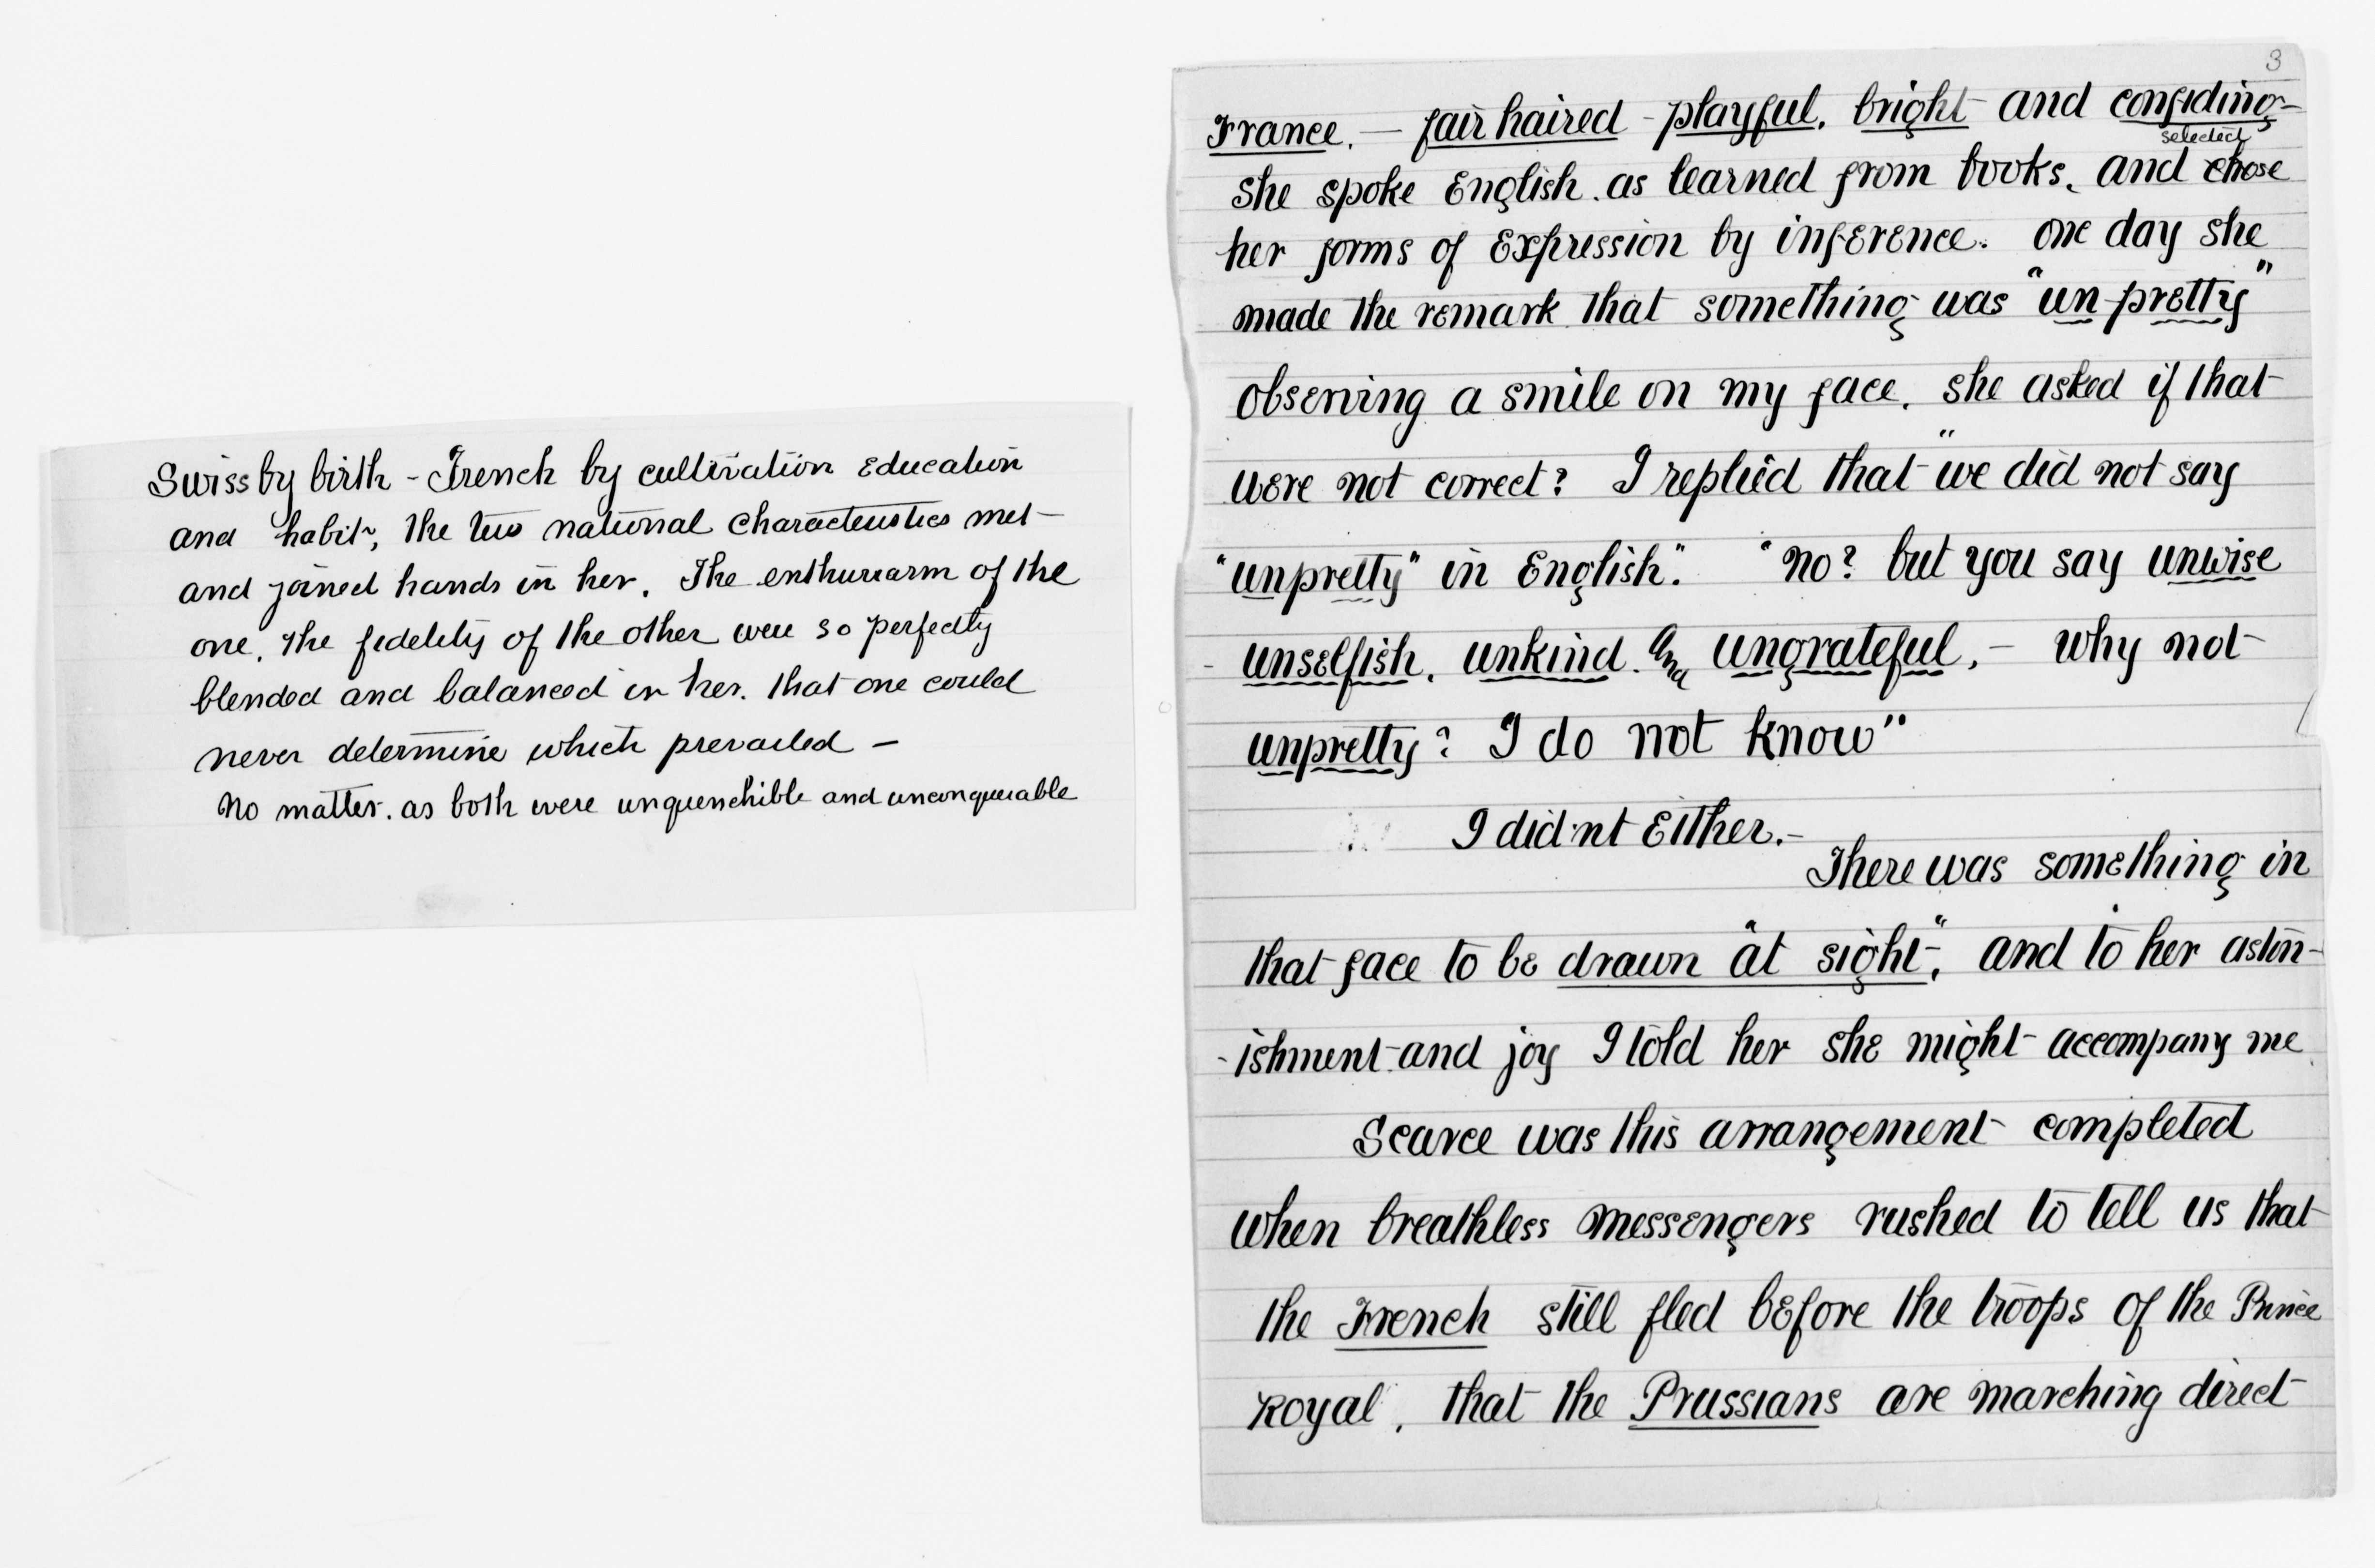 Swiss by birth - French by cultivation education
and habit, the two national characteristics met -
and joined hands in her. The enthusiasm of the
one, the fidelity of the other were so perfectly
blended and balanced in her. that one could
never determine which prevailed -
No matter. as both were unquenchible and unconquerable
3
France. - fair haired - playful, bright and confiding -
selected
she spoke English. as learned from books, and chose
her forms of Expression by inference. one day she
made the remark that something was "un-pretty"
observing a smile on my face, she asked if that
were not correct? I replied that "we did not say
"unpretty" in English." "no? but you say unwise
- unselfish, unkind. and ungrateful, - why not
unpretty? I do not know"
I did'nt Either. -
There was something in
that face to be drawn "at sight", and to her aston-
- ishment and joy I told her she might accompany me
Scarce was this arrangement completed
when breathless messengers rushed to tell us that
the French still fled before the troops of the Prince
Royal, that the Prussians are marching direct